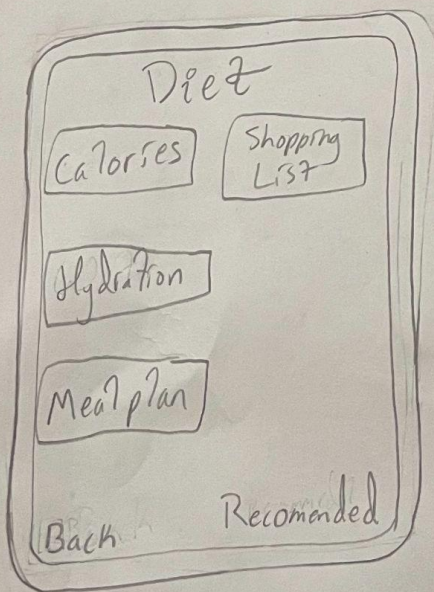 Diet
Calories
Shopping
List
Hydration
Meal plan
Back
Recomended